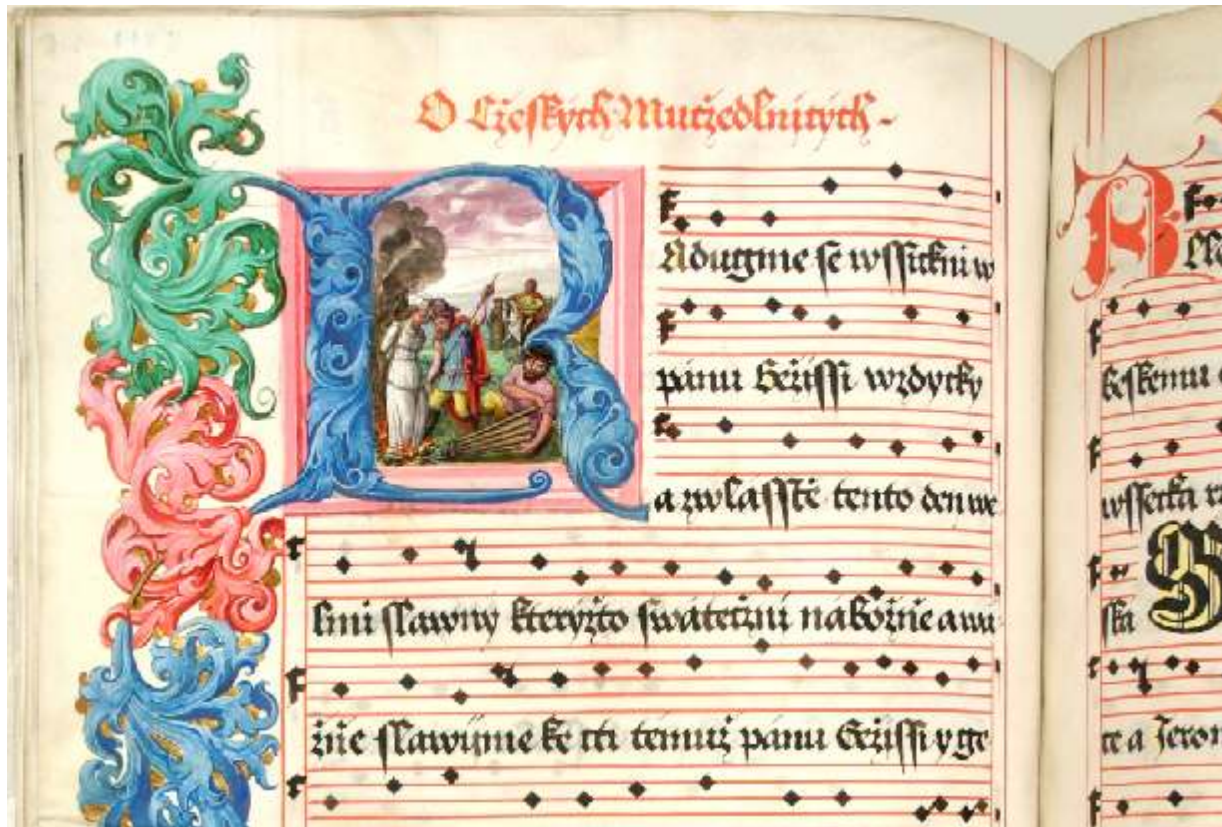 O Cžeských Mutžedlnitých
RAdugme se wssickni w
pánu Gežissi wzdycky
a zwlasstě tento den we
lmi slawny kteryžto swátečzni nábožnie a wá
žnie slawijme ke cti temuž pánu Gežissi y ge
B
keskemu
wssecka
ska
te a Jeron